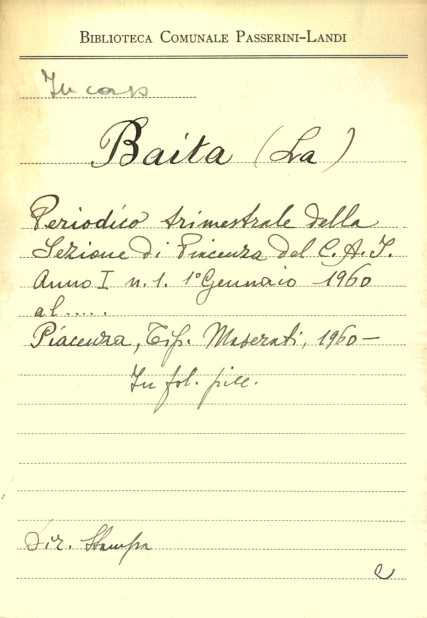 BIBLIOTECA COMUNALE PASSERINI-LANDI
In cors
Baita (La)
Periodico trimestrale della
Sezione di Piacenza del C.A.I.
Anno I n. 1. 1° Gennaio 1960
al.....
Piacenza, Tip. Maserati, 1960-
In fol. picc.
Dir. Stampa
e